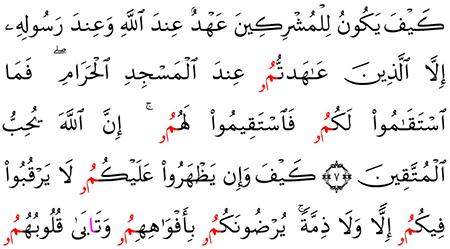 كَيۡفَ يَكُونُ لِلۡمُشۡرِكِينَ عَهۡدٌ عِندَ ٱللَّهِ وَعِندَ رَسُولِهِۦ
إِلَّا ٱلَّذِينَ عَٰهَدتُّمُۥ عِندَ ٱلۡمَسۡجِدِ ٱلۡحَرَامِۖ فَمَا
ٱسۡتَقَٰمُواْ لَكُمُۥ فَٱسۡتَقِيمُواْ لَهُمُۥۚ إِنَّ ٱللَّهَ يُحِبُّ
ٱلۡمُتَّقِينَ ۝٧ كَيۡفَ وَإِن يَظۡهَرُواْ عَلَيۡكُمُۥ لَا يَرۡقُبُواْ
فِيكُمُۥ إِلّٗا وَلَا ذِمَّةٗۚ يُرۡضُونَكُمُۥ بِأَفۡوَٰهِهِمُۥ وَتَابَىٰ قُلُوبُهُمُۥ